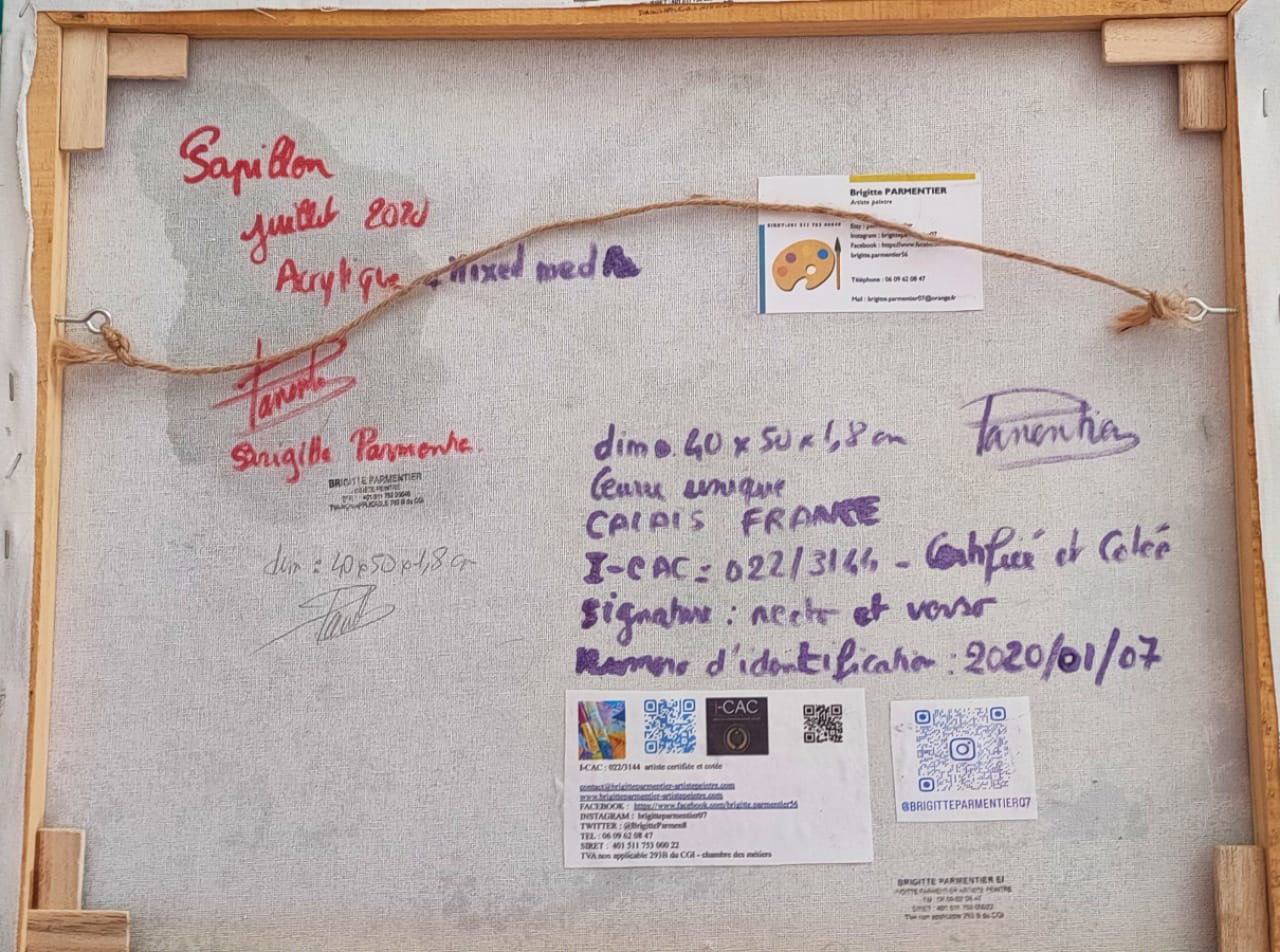 Papillon
juillet 2020
Acrylique : mixed med
Brigitte PARMENTIER
Artiste peintre
Instagram :
Facebook : https://www.
brigitte.parmentier56
Téléphone : 06 09 62 08 47
Mail : brigitte.parmentier07@orange.fr
Brigitte Parmentier.
BRIGITTE PARMENTIER
dim : 40 x 50 x 1,8 cm
Parmentier
dim. 40 x 50 x 1,8 cm
Œuvre unique
CALAIS FRANCE
I-CAC = 022/3144 - Certifiée et Cotée
Signature : recto et verso
Numero d'identification : 2020/01/07
I-CAC
I-CAC : 022/3144 artiste certifiée et cotée
contact@brigitteparmentier-artistepeintre.com
www.brigitteparmentier-artistepeintre.com
FACEBOOK : https://www.facebook.com/brigitte.parmentier56
INSTAGRAM : brigitteparmentier07
TWITTER : @BrigitteParmen8
TEL : 06 09 62 08 47
SIRET : 401 511 753 000 22
TVA non applicable 293B du CGI - chambre des métiers
@BRIGITTEPARMENTIER07
BRIGITTE PARMENTIER EI
TVA non applicable 293 B du CGI